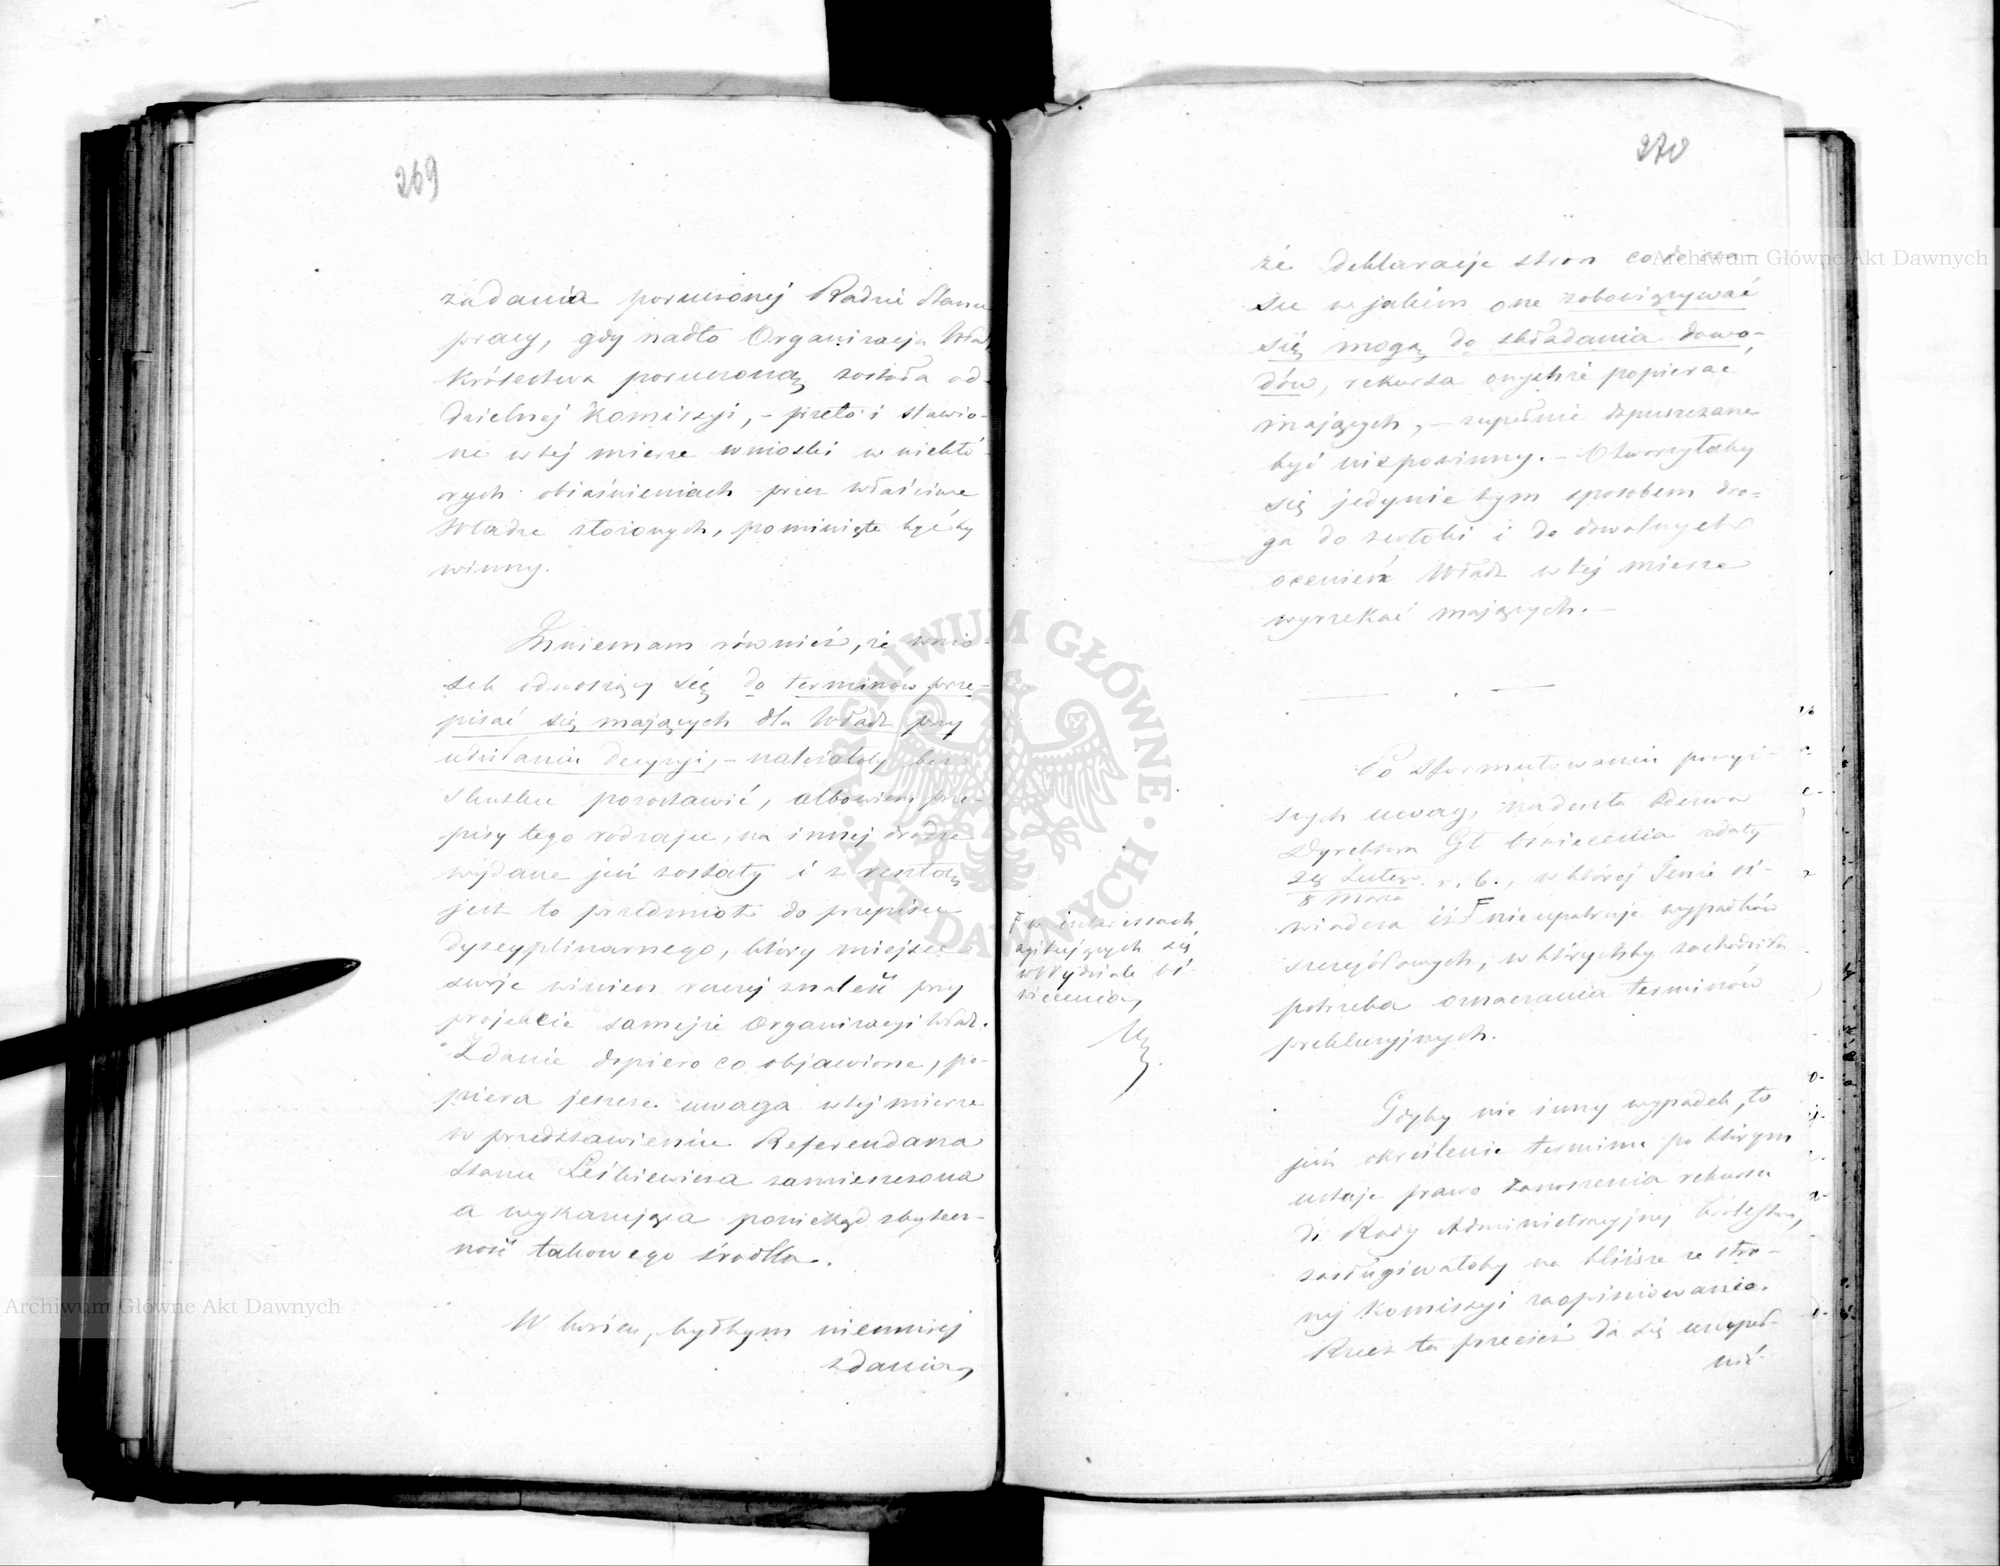 269
zadania poruczonej Radzie Stanu
pracy, gdy nadto Organizacja Władz
Królestwa poruczoną została od-
dzielnej Komissyi, – przeto i stawio-
ne w tej mierze wnioski w niektó-
rych objaśnieniach przez właściwe
Władze złożonych, pominięte być by
winny.
Mniemam również, że wnio-
sek odnoszący się do terminów prze-
pisać się mających dla Władz przy
udzielaniu decyzyi, – należałoby bez
skutku pozostawić, albowiem prze-
pisy tego rodzaju, na innej drodze
wydane już zostały i z resztą
jest to przedmiot do przepisu
dyscyplinarnego, który miejsce
swoje winien raczej znaleść przy
projekcie samejże Organizacyi Władz.
Zdanie dopiero co objawione, po-
piera jeszcze uwaga w tej mierze
w przedstawieniu Referendarza
Stanu Leśkiewicza zamieszczona
a wykazująca poniekąd zbytecz-
ność takowego środka.
W końcu, byłbym niemniej
zdania,
270
że deklaracje stron co do cza-
su w jakim one zobowiązywać
się mogą do składania dowo-
dów, rekursa onychże popierać
mających, – zupełnie dopuszczane
być niepowinny. – Otworzyłaby
się jedynie tym sposobem dro-
ga do zwłoki i do dowolnych
ocenień Władz w tej mierze
wyrzekać mających. –
Po sformułowaniu powyż-
szych uwag, nadeszła Odezwa
Dyrektora Gł. Oświecenia z daty
28 Lutego
8 Marca
r. b., w której Tenże o-
świadcza iż F nieupatruje wypadków
szczegółowych, w którychby zachodziła
potrzeba oznaczania terminów
prekluzyjnych.
F w interessach
agitujących się
w Wydziale O-
świecenia,
Gdyby nie inny wypadek, to
już określenie terminu po którym
ustaje prawo zanoszenia rekursu
do Rady Administracyjnej Królestwa,
zasługiwałoby na bliższe ze stro-
ny Komissyi zaopiniowanie.
Rzecz ta przecież da się uzupeł-
nić
Archiwum Główne Akt Dawnych
Archiwum Główne Akt Dawnych
ARCHIWUM GŁÓWNE
AKT DAWNYCH